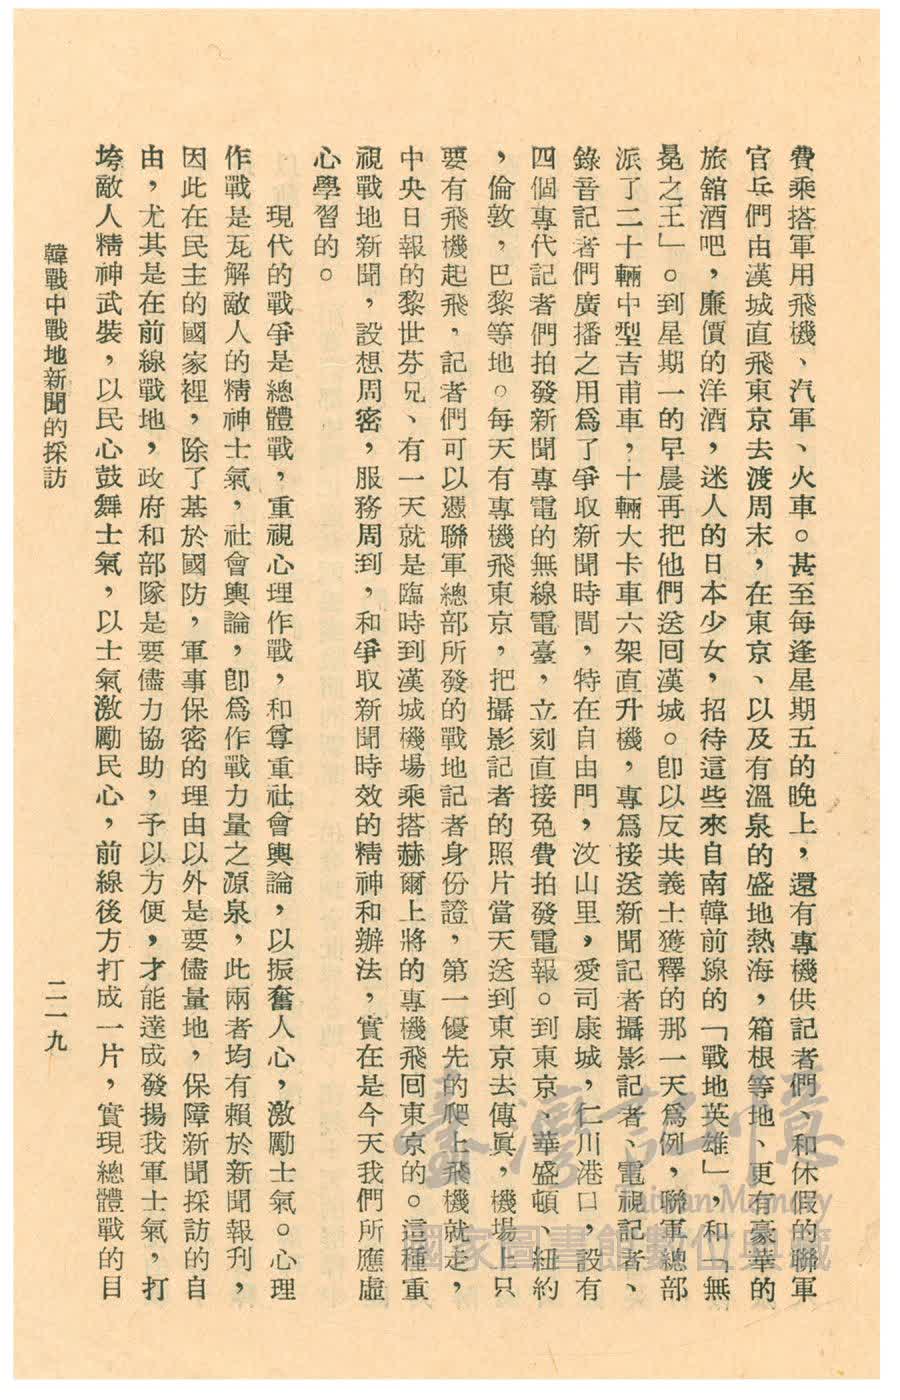 費乘搭軍用飛機、汽軍、火車。甚至每逢星期五的晚上，還有專機供記者們、和休假的聯軍
官兵們由漢城直飛東京去渡周末，在東京、以及有溫泉的盛地熱海，箱根等地、更有豪華的
旅舘酒吧，廉價的洋酒，迷人的日本少女，招待這些來自南韓前線的「戰地英雄」，和「無
冕之王」。到星期一的早晨再把他們送回漢城。卽以反共義士獲釋的那一天爲例，聯軍總部
派了二十輛中型吉甫車，十輛大卡車六架直升機，專爲接送新聞記者攝影記者、電視記者、
錄音記者們廣播之用爲了爭取新聞時間，特在自由門，汶山里，愛司康城，仁川港口，設有
四個專代記者們拍發新聞專電的無線電臺，立刻直接免費拍發電報。到東京、華盛頓、紐約
，倫敦，巴黎等地。每天有專機飛東京，把攝影記者的照片當天送到東京去傳眞，機場上只
要有飛機起飛，記者們可以憑聯軍總部所發的戰地記者身份證，第一優先的爬上飛機就走，
中央日報的黎世芬兄、有一天就是臨時到漢城機場乘搭赫爾上將的專機飛回東京的。這種重
視戰地新聞，設想周密，服務周到，和爭取新聞時效的精神和辦法，實在是今天我們所應虛
心學習的。
現代的戰爭是總體戰，重視心理作戰，和尊重社會輿論，以振奮人心，激勵士氣。心理
作戰是瓦解敵人的精神士氣，社會輿論，卽爲作戰力量之源泉，此兩者均有賴於新聞報刋，
因此在民主的國家裡，除了基於國防，軍事保密的理由以外是要儘量地，保障新聞採訪的自
由，尤其是在前線戰地，政府和部隊是要儘力協助，予以方便，才能達成發揚我軍士氣，打
垮敵人精神武裝，以民心鼓舞士氣，以士氣激勵民心，前線後方打成一片，實現總體戰的目
韓戰中戰地新聞的採訪
二一九
臺灣記憶
Taiwan Memory
國家圖書館數位典藏